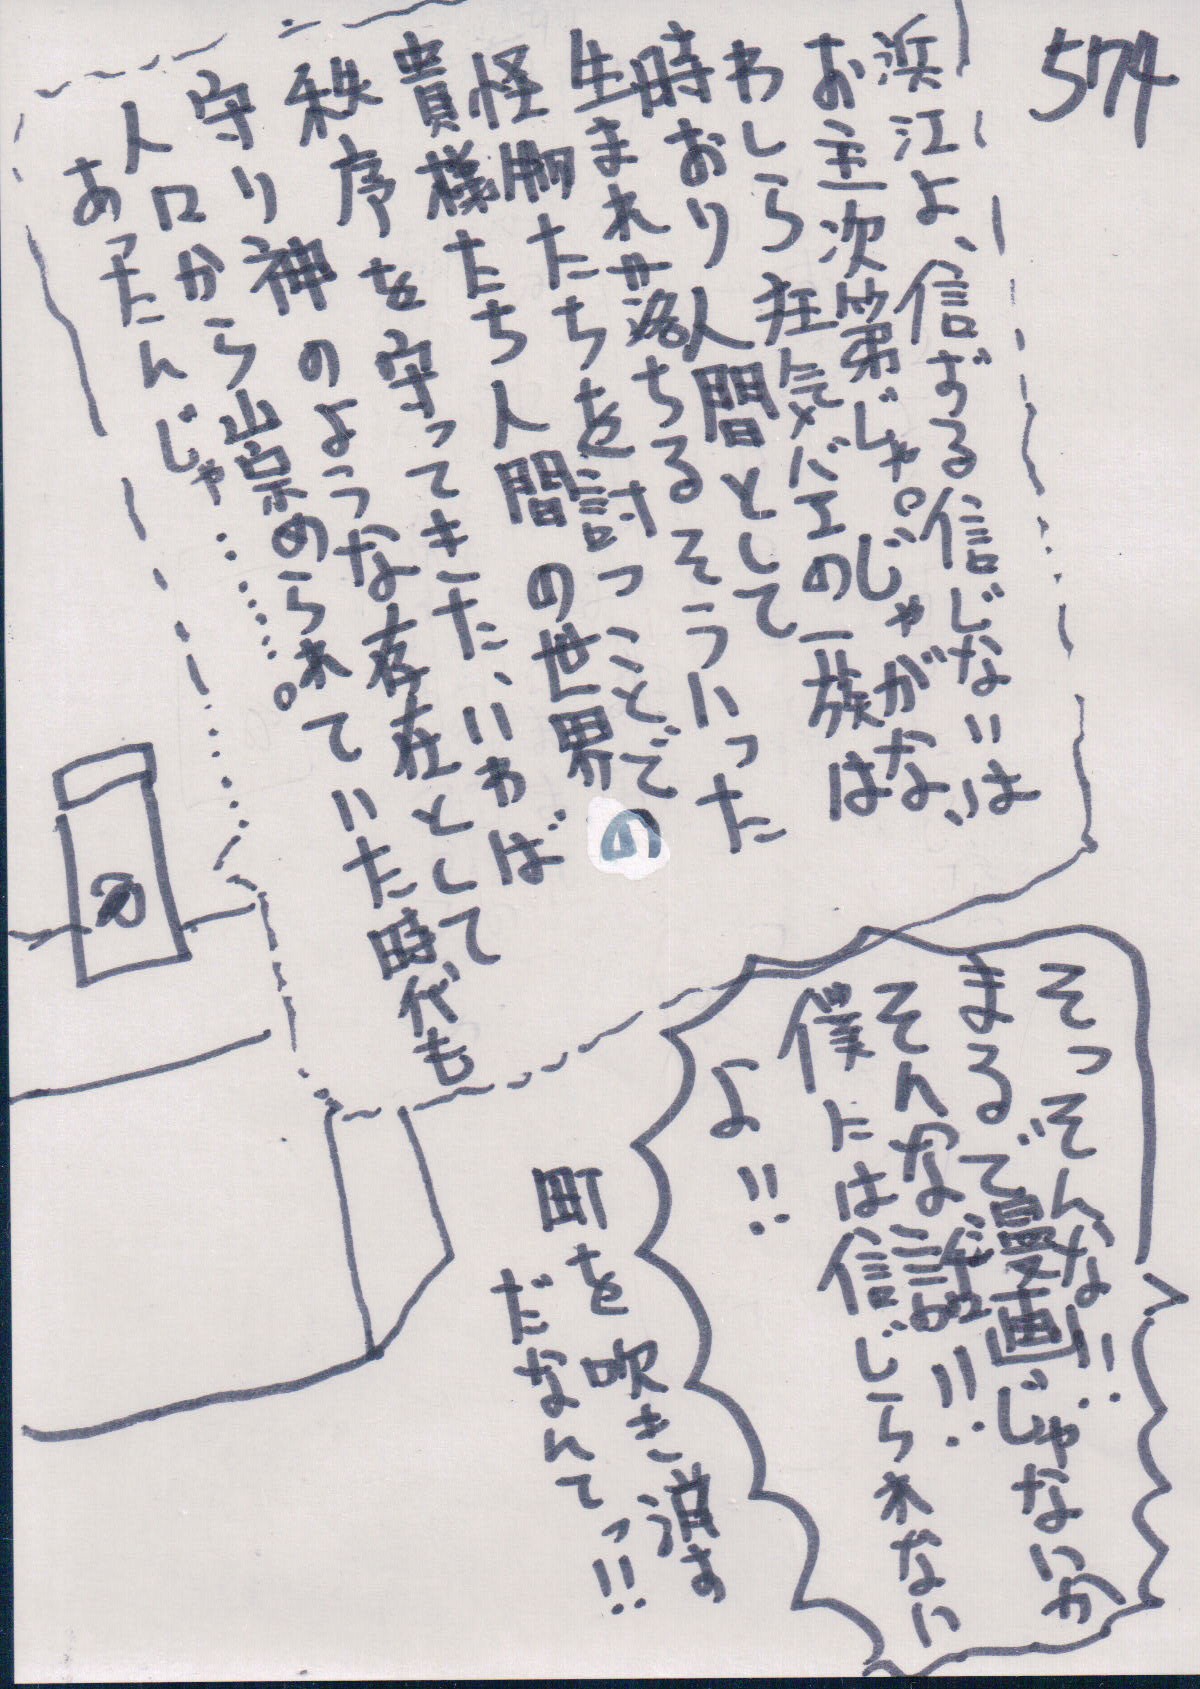 574
浜江よ、信ずる信じないは
お主次第じゃ。じゃがな、
わしら狂気バエの一族は
時おり人間として
生まれ落ちるそういった
怪物たちを討つことで
貴様たち人間の世界の
秩序を守ってきた、いわば
守り神のような存在として
人口から崇められていた時代も
あったんじゃ……………。
そっそんな!!
まるで漫画じゃないか
そんな話!!
僕には信じられない
よ!!
町を吹き消す
だなんてっ!!